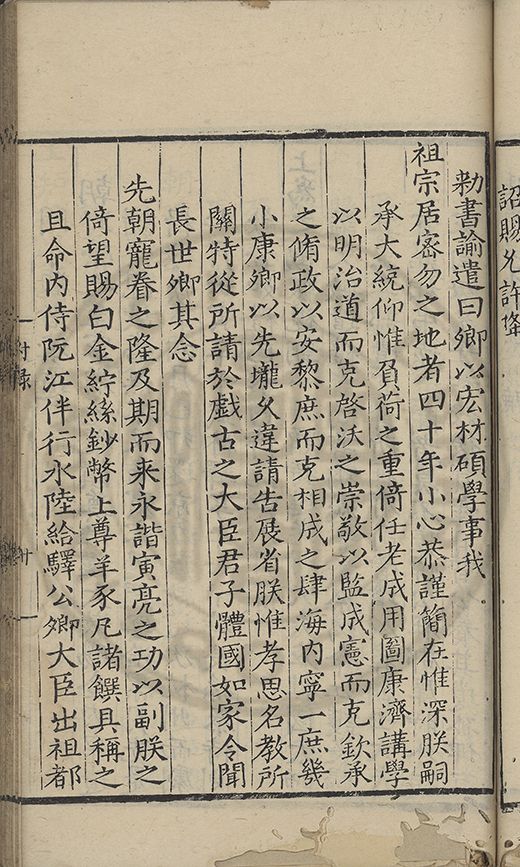 詔賜允許降
勑書諭遣曰卿以宏材碩學事我
祖宗居密勿之地者四十年小心恭謹簡在惟深朕嗣
承大統仰惟負荷之重倚任老成用圖康濟講學
以明治道而克啓沃之崇敬以監成憲而克欽承
之脩政以安黎庶而克相成之肆海内寧一庶幾
小康卿以先壠久違請告展省朕惟孝思名教所
關特從所請於戲古之大臣君子體國如家令聞
長世卿其念
先朝寵眷之隆及期而来永諧寅亮之功以副朕之
倚望賜白金紵絲鈔幣上尊羊豕凡諸饌具稱之
且命内侍阮江伴行水陸給驛公卿大臣出祖都
附录